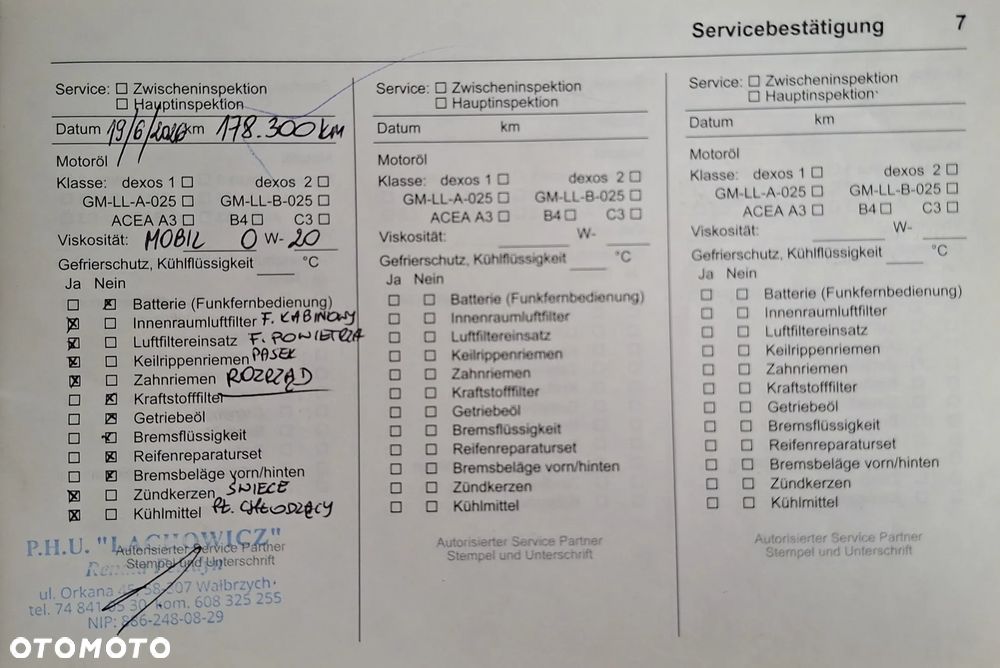 Servicebestätigung 7
Service: ☐ Zwischeninspektion
☐ Hauptinspektion
Datum 19/6/2026 km 178.300 KM
Motoröl
Klasse: dexos 1 ☐ dexos 2 ☐
GM-LL-A-025 ☐ GM-LL-B-025 ☐
ACEA A3 ☐ B4 ☐ C3 ☐
Viskosität: MOBIL 0 W- 20
Gefrierschutz, Kühlflüssigkeit ____ °C
Ja Nein
☐ ☒ Batterie (Funkfernbedienung)
☒ ☐ Innenraumluftfilter F. KABINOWY
☒ ☐ Luftfiltereinsatz F. POWIETRZA
☒ ☐ Keilrippenriemen PASEK
☒ ☐ Zahnriemen ROZRZĄD
☐ ☒ Kraftstofffilter
☐ ☒ Getriebeöl
☐ ☒ Bremsflüssigkeit
☐ ☒ Reifenreparaturset
☐ ☒ Bremsbeläge vorn/hinten
☒ ☐ Zündkerzen ŚWIECE
☒ ☐ Kühlmittel PŁ. CHŁODZĄCY
P.H.U. "LACHOWICZ"
Autorisierter Service Partner
Stempel und Unterschrift
ul. Orkana 58-207 Wałbrzych
tel. 74 841 30, kom. 608 325 255
NIP: 886-248-08-29
Service: ☐ Zwischeninspektion
☐ Hauptinspektion
Datum km
Motoröl
Klasse: dexos 1 ☐ dexos 2 ☐
GM-LL-A-025 ☐ GM-LL-B-025 ☐
ACEA A3 ☐ B4 ☐ C3 ☐
Viskosität: ____ W- ____
Gefrierschutz, Kühlflüssigkeit ____ °C
Ja Nein
☐ ☐ Batterie (Funkfernbedienung)
☐ ☐ Innenraumluftfilter
☐ ☐ Luftfiltereinsatz
☐ ☐ Keilrippenriemen
☐ ☐ Zahnriemen
☐ ☐ Kraftstofffilter
☐ ☐ Getriebeöl
☐ ☐ Bremsflüssigkeit
☐ ☐ Reifenreparaturset
☐ ☐ Bremsbeläge vorn/hinten
☐ ☐ Zündkerzen
☐ ☐ Kühlmittel
Autorisierter Service Partner
Stempel und Unterschrift
Service: ☐ Zwischeninspektion
☐ Hauptinspektion
Datum km
Motoröl
Klasse: dexos 1 ☐ dexos 2 ☐
GM-LL-A-025 ☐ GM-LL-B-025 ☐
ACEA A3 ☐ B4 ☐ C3 ☐
Viskosität: ____ W- ____
Gefrierschutz, Kühlflüssigkeit ____ °C
Ja Nein
☐ ☐ Batterie (Funkfernbedienung)
☐ ☐ Innenraumluftfilter
☐ ☐ Luftfiltereinsatz
☐ ☐ Keilrippenriemen
☐ ☐ Zahnriemen
☐ ☐ Kraftstofffilter
☐ ☐ Getriebeöl
☐ ☐ Bremsflüssigkeit
☐ ☐ Reifenreparaturset
☐ ☐ Bremsbeläge vorn/hinten
☐ ☐ Zündkerzen
☐ ☐ Kühlmittel
Autorisierter Service Partner
Stempel und Unterschrift
OTOMOTO